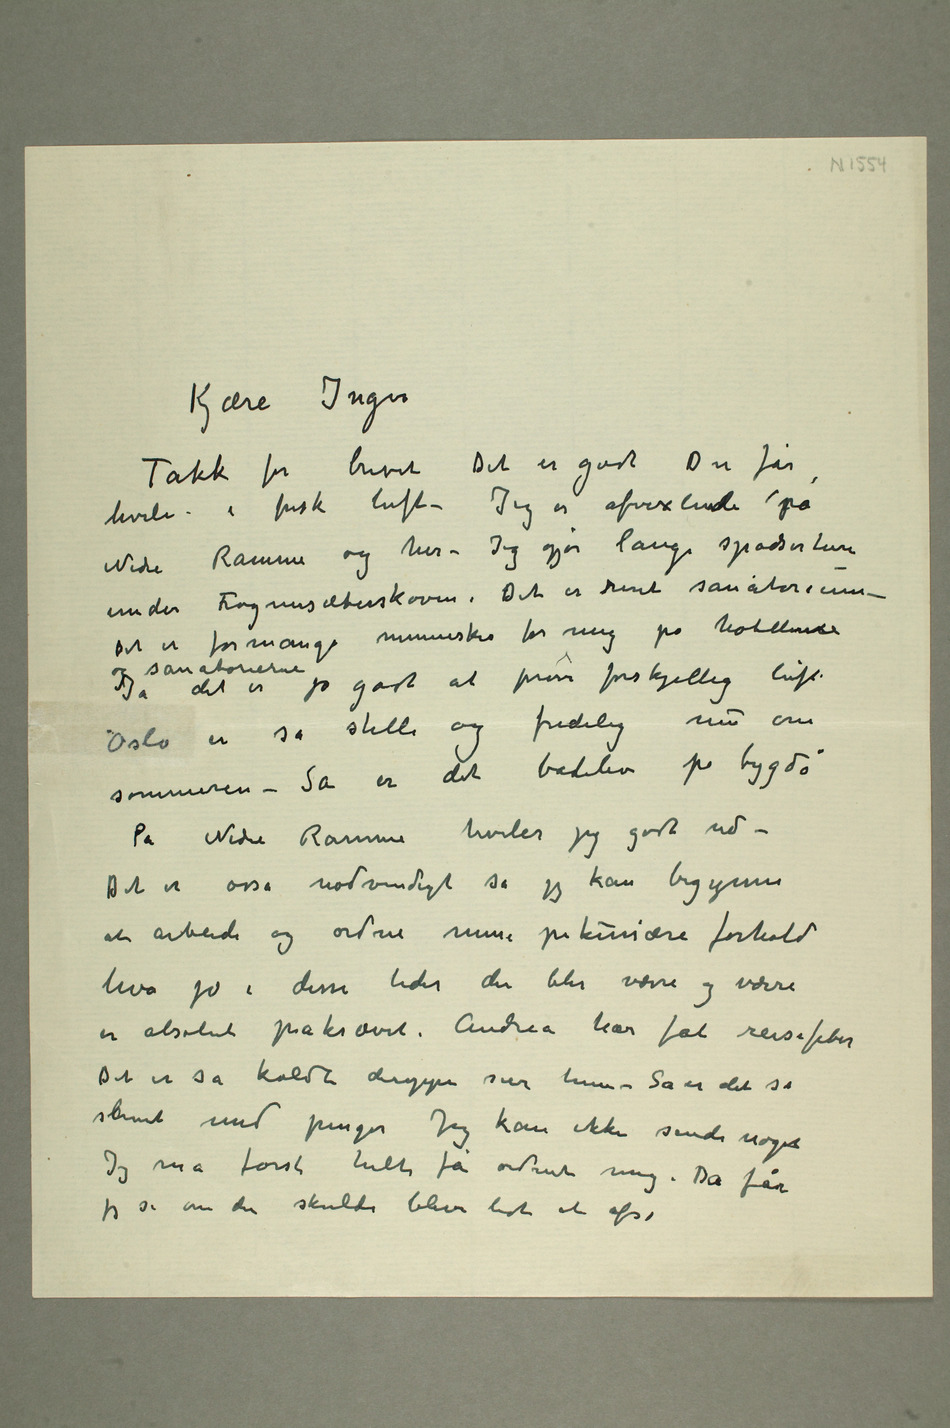 N 1554
Kjære Inger
Takk for brevet Det er godt Du får
hvile i frisk luft – Jeg er afvexlende på
Nedre Ramme og her – Jeg gjør lange spadserture
under Frognersæterskoven. Det er rent sanatorium –
Det er formange mennesker for mig på hotellerne
og sanatorierne
Ja det er jo godt at prøve forskjellig luft.
Oslo er så stille og fredelig nu om
sommeren – Så er det badeliv på bygdö
På Nedre Ramme hviler jeg godt ud –
Det er osså nødvendigt så jeg kan begynne
at arbeide og ordne mine pekuniære forhold
hva jo i disse tider der blir værre og værre
er absolut påkrævet. Andrea har fåt reisefeber
Det er så koldt deroppe sier hun – Så er det så
slemt med penger Jeg kan ikke sende noget
Jeg må først helt få ordnet mig. Da får
jeg se om der skulde blive lidt at afse